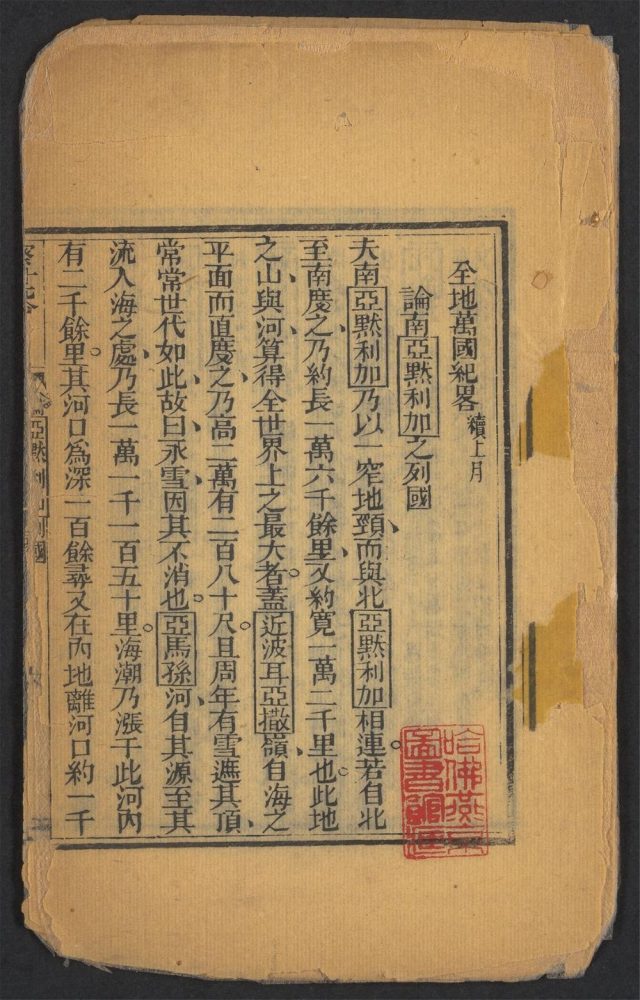 全地萬國紀畧 續上月
論南亞黙利加之列國
夫南亞黙利加乃以一窄地頸、而與北亞黙利加相連。若自北
至南度之、乃約長一萬六千餘里、又約寬一萬二千里也。此地
之山與河、算得全世界上之最大者。蓋近波耳亞撒嶺、自海之
平面而直度之、乃高二萬有二百八十尺。且周年有雪遮其頂、
常常世代如此、故曰永雪、因其不消也。亞馬孫河、自其源至其
流入海之處、乃長一萬一千一百五十里。海潮乃漲于此河內
有二千餘里。其河口爲深一百餘尋。又在內地離河口約一千
亞黙利加列國
哈佛燕京圖書館